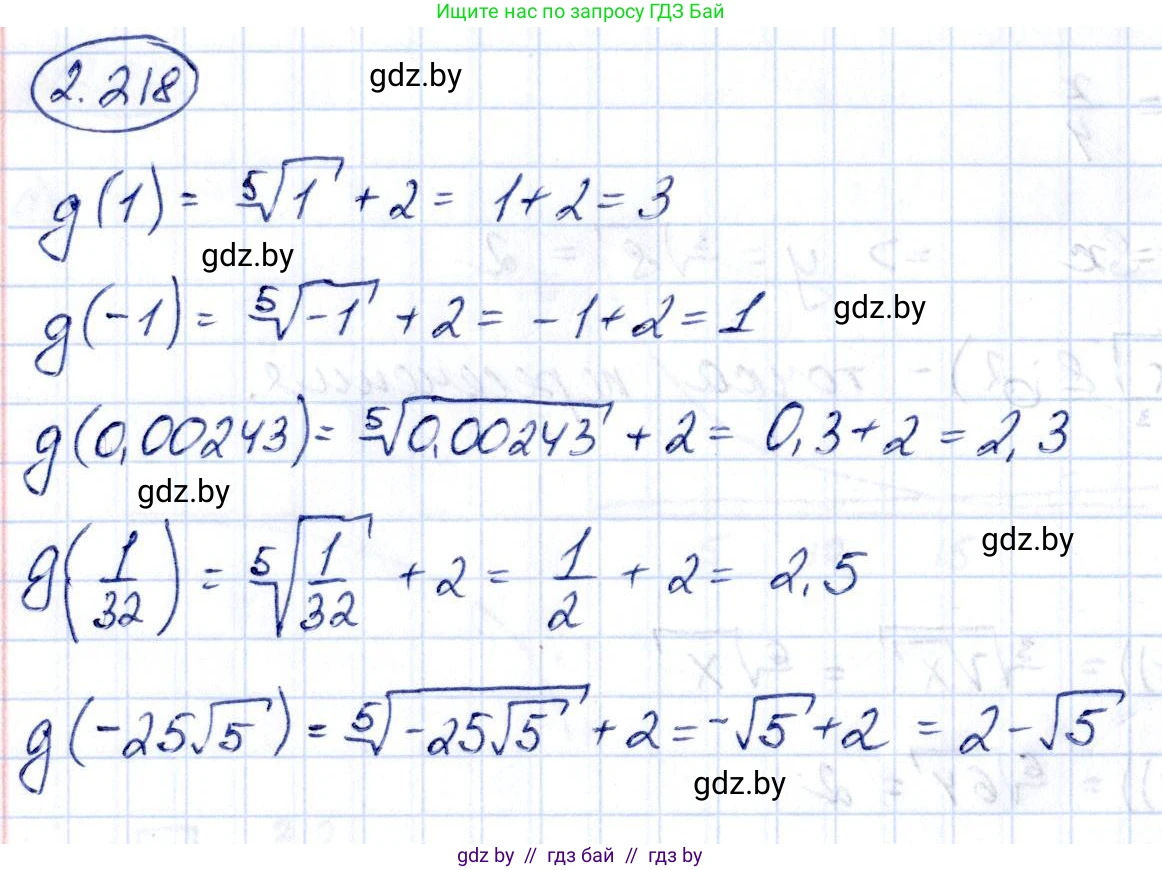 Ищите нас по запросу ГДЗ Бай
2.218
gdz.by
g(1) = ⁵√1 + 2 = 1+2 = 3
gdz.by
g(-1) = ⁵√-1 + 2 = -1+2 = 1
gdz.by
g(0,00243) = ⁵√0,00243 + 2 = 0,3+2 = 2,3
gdz.by
g(1/32) = ⁵√1/32 + 2 = 1/2 + 2 = 2,5
gdz.by
g(-25√5) = ⁵√-25√5 + 2 = -√5 + 2 = 2-√5
gdz.by
gdz by // гдз бай // гдз by